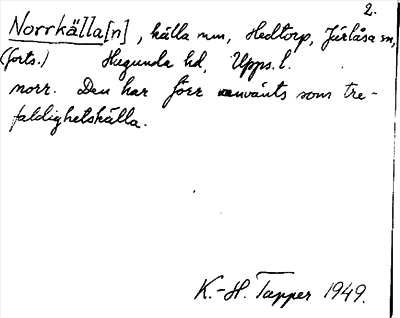 2.
Norrkälla[n], källa mm, Hedtorp, Järlåsa sn,
(forts.) Hagunda hd, Upps. l.
norr. Den har förr använts som tre-
faldighetskälla.
K.-H. Tapper 1949.